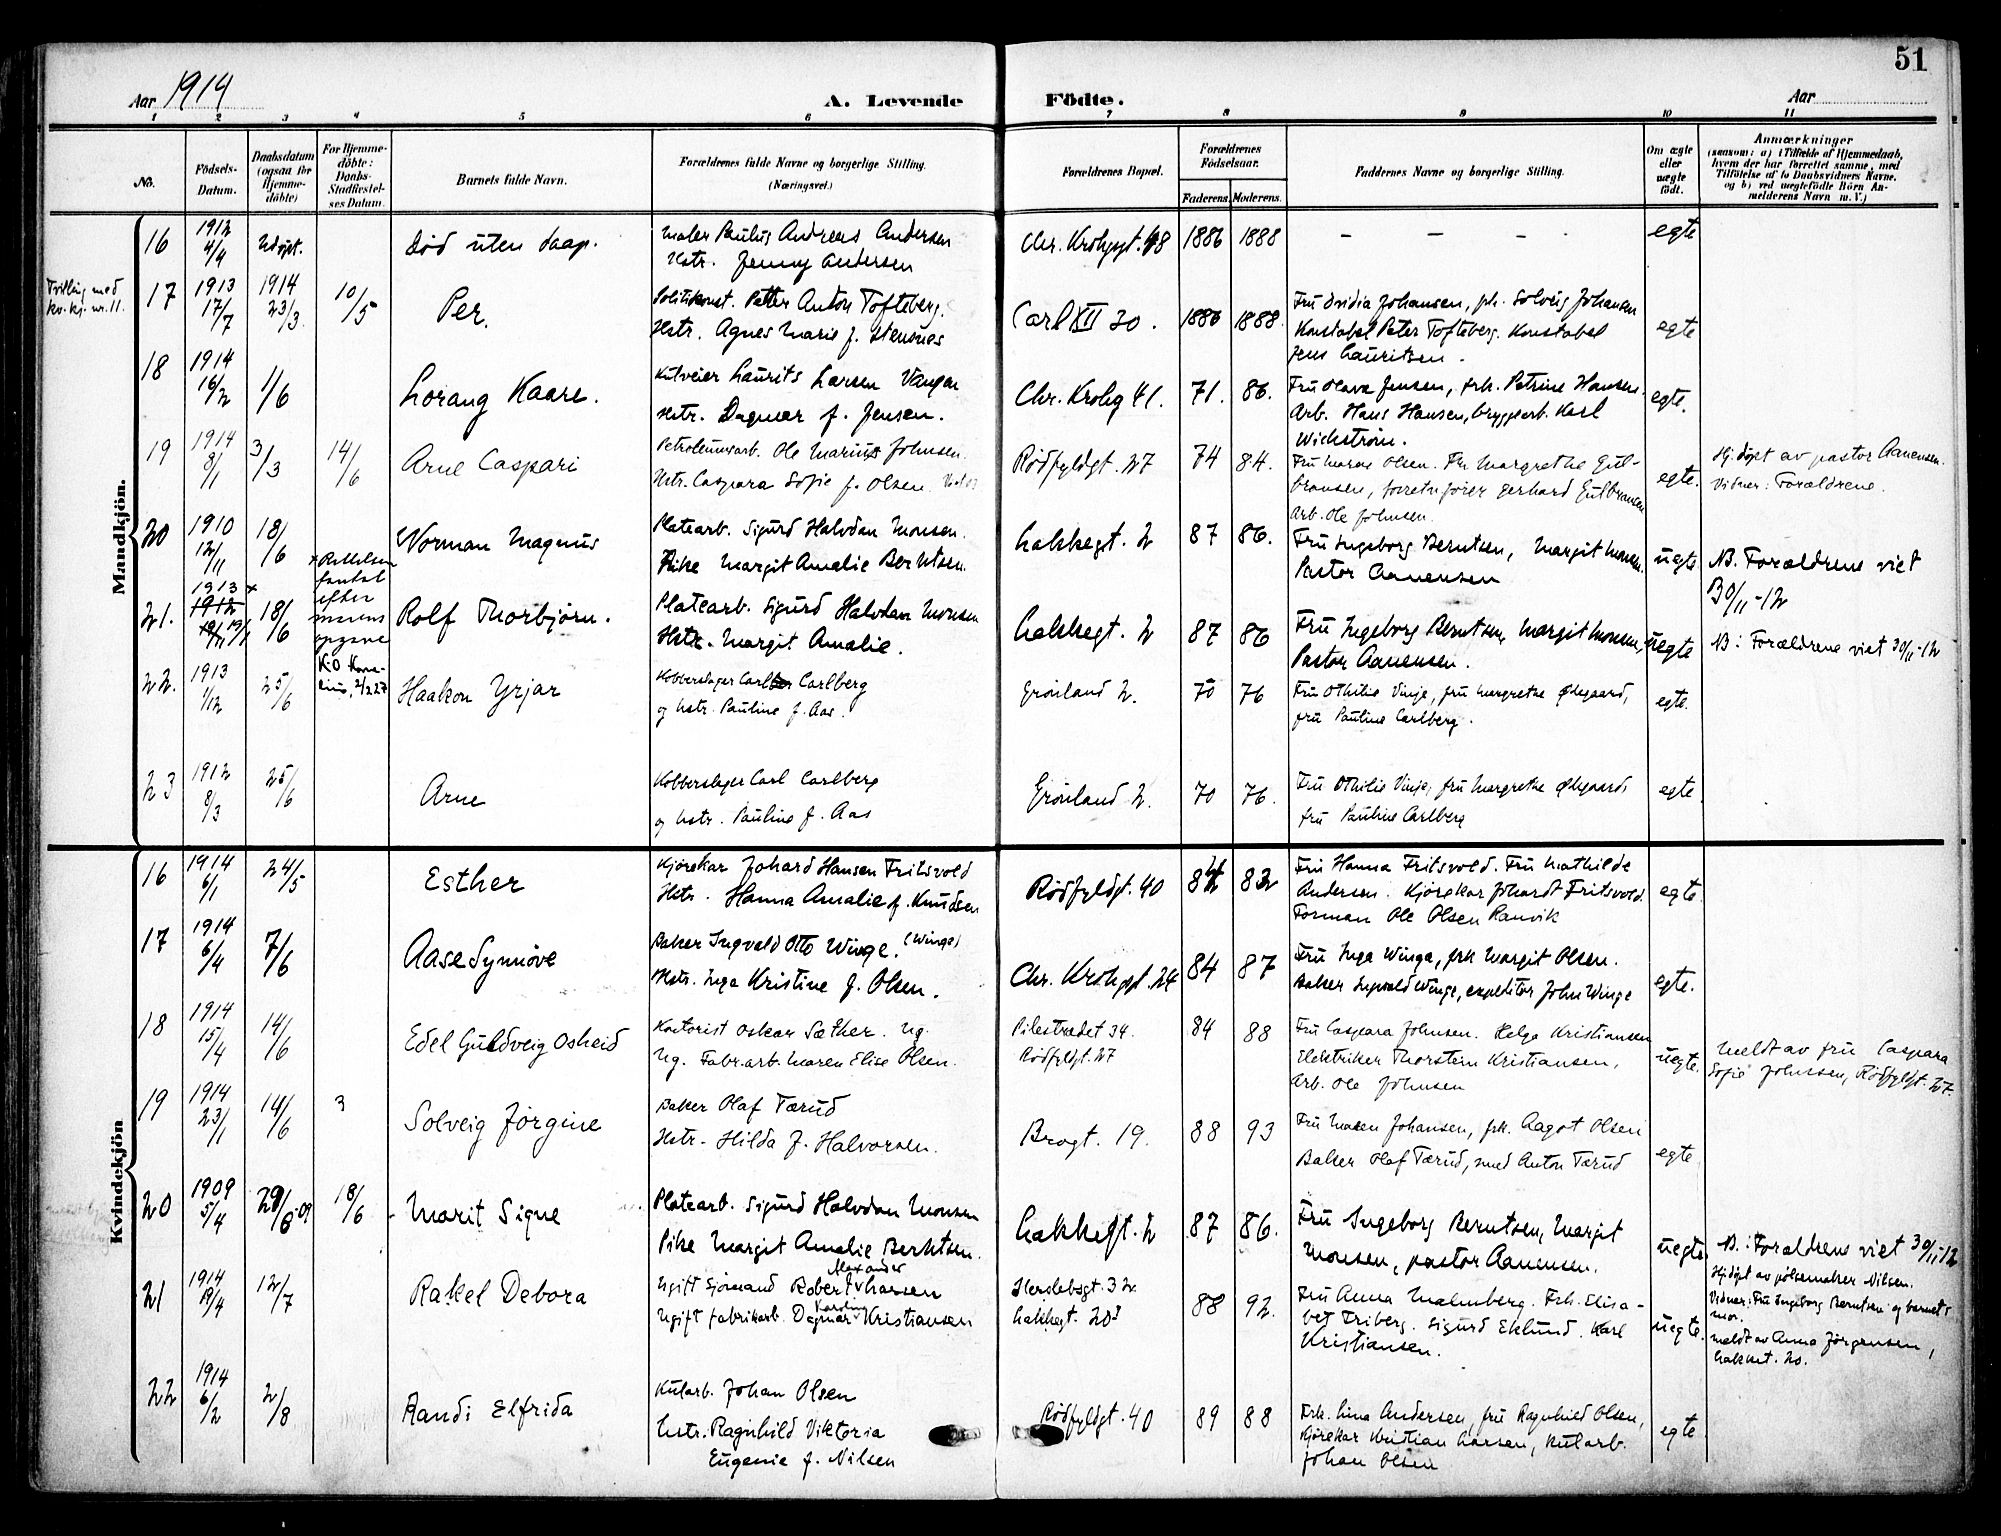 51
Aar 1914
A. Levende
Fødte.
Aar
1 2 3 4 5 6 7 8 9 10 11
No.
Fødsels-Datum.
Daabsdatum (ogsaa for Hjemmedøbte)
For Hjemmedøbte: Daabs-Stadfæstelses Datum.
Barnets fulde Navn.
Forældrenes fulde Navne og borgerlige Stilling. (Næringsvei.)
Forældrenes Bopæl.
Forældrenes Fødselsaar.
Faderens. Moderens.
Faddernes Navne og borgerlige Stilling.
Om ægte eller uægte født.
Anmærkninger
(saasom: a) i Tilfælde af Hjemmedaab,
hvem der har forrettet samme, med
Tilføielse af to Daabsvidners Navne.
og b) ved uægtefødte Børn Anmelderens Navn m. V.)
Mandkjøn.
16 1912 4/4 Udøpt. Død uten daap. Maler Paulus Andreas Andersen Chr. Krohgsgt. 48 1886 1888 – – – egte
Hstr. Jenny Andersen
Tvilling med kv.kj. nr. 11.
17 1913 17/7 1914 23/3 10/5 Per. Politikonst. Petter Anton Tofteberg. Carl XII 20. 1886 1888. Fru Ovidia Johansen, frk. Solveig Johansen egte
Hstr. Agnes Marie f. Stensnes Konstabel Peter Tofteberg. Konstabel
Jens Lauritsen.
18 1914 16/2 1/6 Lorang Kaare. Kulveier Laurits Larsen Vangen Chr. Krohg 41. 71. 86. Fru Olava Jensen, frk. Petrine Hansen. egte.
Hstr. Dagmar f. Jensen. Arb. Hans Hansen, bryggearb. Karl
Wickstrøm.
19 1914 8/1 3/3 14/6 Arne Caspari Petroleumsarb. Ole Marius Johnsen. Rødfyldgt. 27 74 84. Fru Maren Olsen. Fru Margrethe Gul- egte. Hj.døpt av pastor Aanensen.
Hstr. Caspara Sofie f. Olsen. bransen, forretn.fører Gerhard Gulbransen Vidner: Forældrene.
Arb. Ole Johnsen.
20 1910 12/11 18/6 Norman Magnus Platearb. Sigurd Halvdan Monsen. Lakkegt. 2 87 86. Fru Ingeborg Berntsen, Margit Monsen. uegte NB. Forældrene viet
Pike Margit Amalie Berntsen. Pastor Aanensen 30/11 -12
21. 1913 x 1912 19/11 19/1 18/6 Rolf Thorbjørn. Platearb. Sigurd Halvdan Monsen Lakkegt. 2 87 86 Fru Ingeborg Berntsen, Margit Monsen, uegte NB: Forældrene viet 30/11 -12
x Rettelsen foretat efter morens opgave
Hstr. Margit Amalie. Pastor Aanensen.
22. 1913 1/12 25/6 Haakon Yrjar Kobberslager Carl Carlberg Grønland 2. 70 76 Fru Othilie Vinje, fru Margrethe Ødegaard, egte.
og hstr. Pauline f. Aas. fru Pauline Carlberg.
23 1912 8/3 25/6 Arne Kobberslager Carl Carlberg Grønland 2. 70 76. Fru Othilie Vinje, fru Margrethe Ødegaard, egte
og hstr. Pauline f. Aas fru Pauline Carlberg
Kvindekjøn
16 1914 6/1 24/5 Esther Kjørekar Johard Hansen Fritsvold Rødfyldgt. 40 Fru Hanna Fritsvold. Fru Mathilde egte
Hstr. Hanna Amalie f. Knudsen Andersen. Kjørekar Johardt Fritsvold.
Formann Ole Olsen Ranvik
17 1914 6/4 7/6 Aase Synnøve Baker Ingvald Otto Winge. (Winge) Chr. Krohgsgt. 24 84 87 Fru Inga Winge, frk Margit Olsen. egte.
Hstr. Inga Kristine f. Olsen. Baker Ingvald Winge, expeditør John Winge
18 1914 15/4 14/6 Edel Guldveig Osheid Kontorist Oskar Sæther. Ug. Pilestrædet 34. 84 88 Fru Caspara Johnsen. Helga Kristiansen uegte. Meldt av fru Caspara
Ug. Fabr.arb. Maren Elise Olsen. Rødfyldgt. 27 Elektriker Thorstein Kristiansen, Sofie Johnsen, Rødfyldgt. 27.
Arb. Ole Johnsen
19 1914 23/1 14/6 3 Solveig Jørgine Baker Olaf Tærud Brogt. 19. 88 93 Fru Maren Johansen, frk. Aagot Olsen egte
Hstr. Hilda f. Halvorsen. Baker Olaf Tærud, med Anton Tærud
20 1909 5/4 29/8 -09 18/6 Marit Signe Platearb. Sigurd Halvdan Monsen Lakkegt. 2 87 86. Fru Ingeborg Berntsen, Margit uegte NB.: Forældrene viet 30/11 -12
Pike Margit Amalie Berntsen. Monsen, pastor Aanensen. Hj.døpt av pølsemaker Nilsen.
Vidner: Fru Ingeborg Berntsen og barnets mor.
21 1914 19/4 12/7 Rakel Debora Ugift Sjømand Robert Alexander Hansen Herslebsgt. 32 88 92. Fru Anna Malmberg. Frk. Elisa- uegte. Meldt av Anna Jørgensen,
Ugift fabrikarb. Dagmar Karoline Kristiansen Lakkegt. 20 bet Friberg. Sigurd Eklund. Karl Lakkegt. 20.
Kristiansen.
22 1914 6/2 2/8 Randi Elfrida Kularb. Johan Olsen Rødfyldgt. 40 89 88 Frk. Lina Andersen, fru Ragnhild Olsen, egte
Hstr. Ragnhild Viktoria Kjørekar Kristian Larsen, kularb.
Eugenie f. Nilsen Johan Olsen